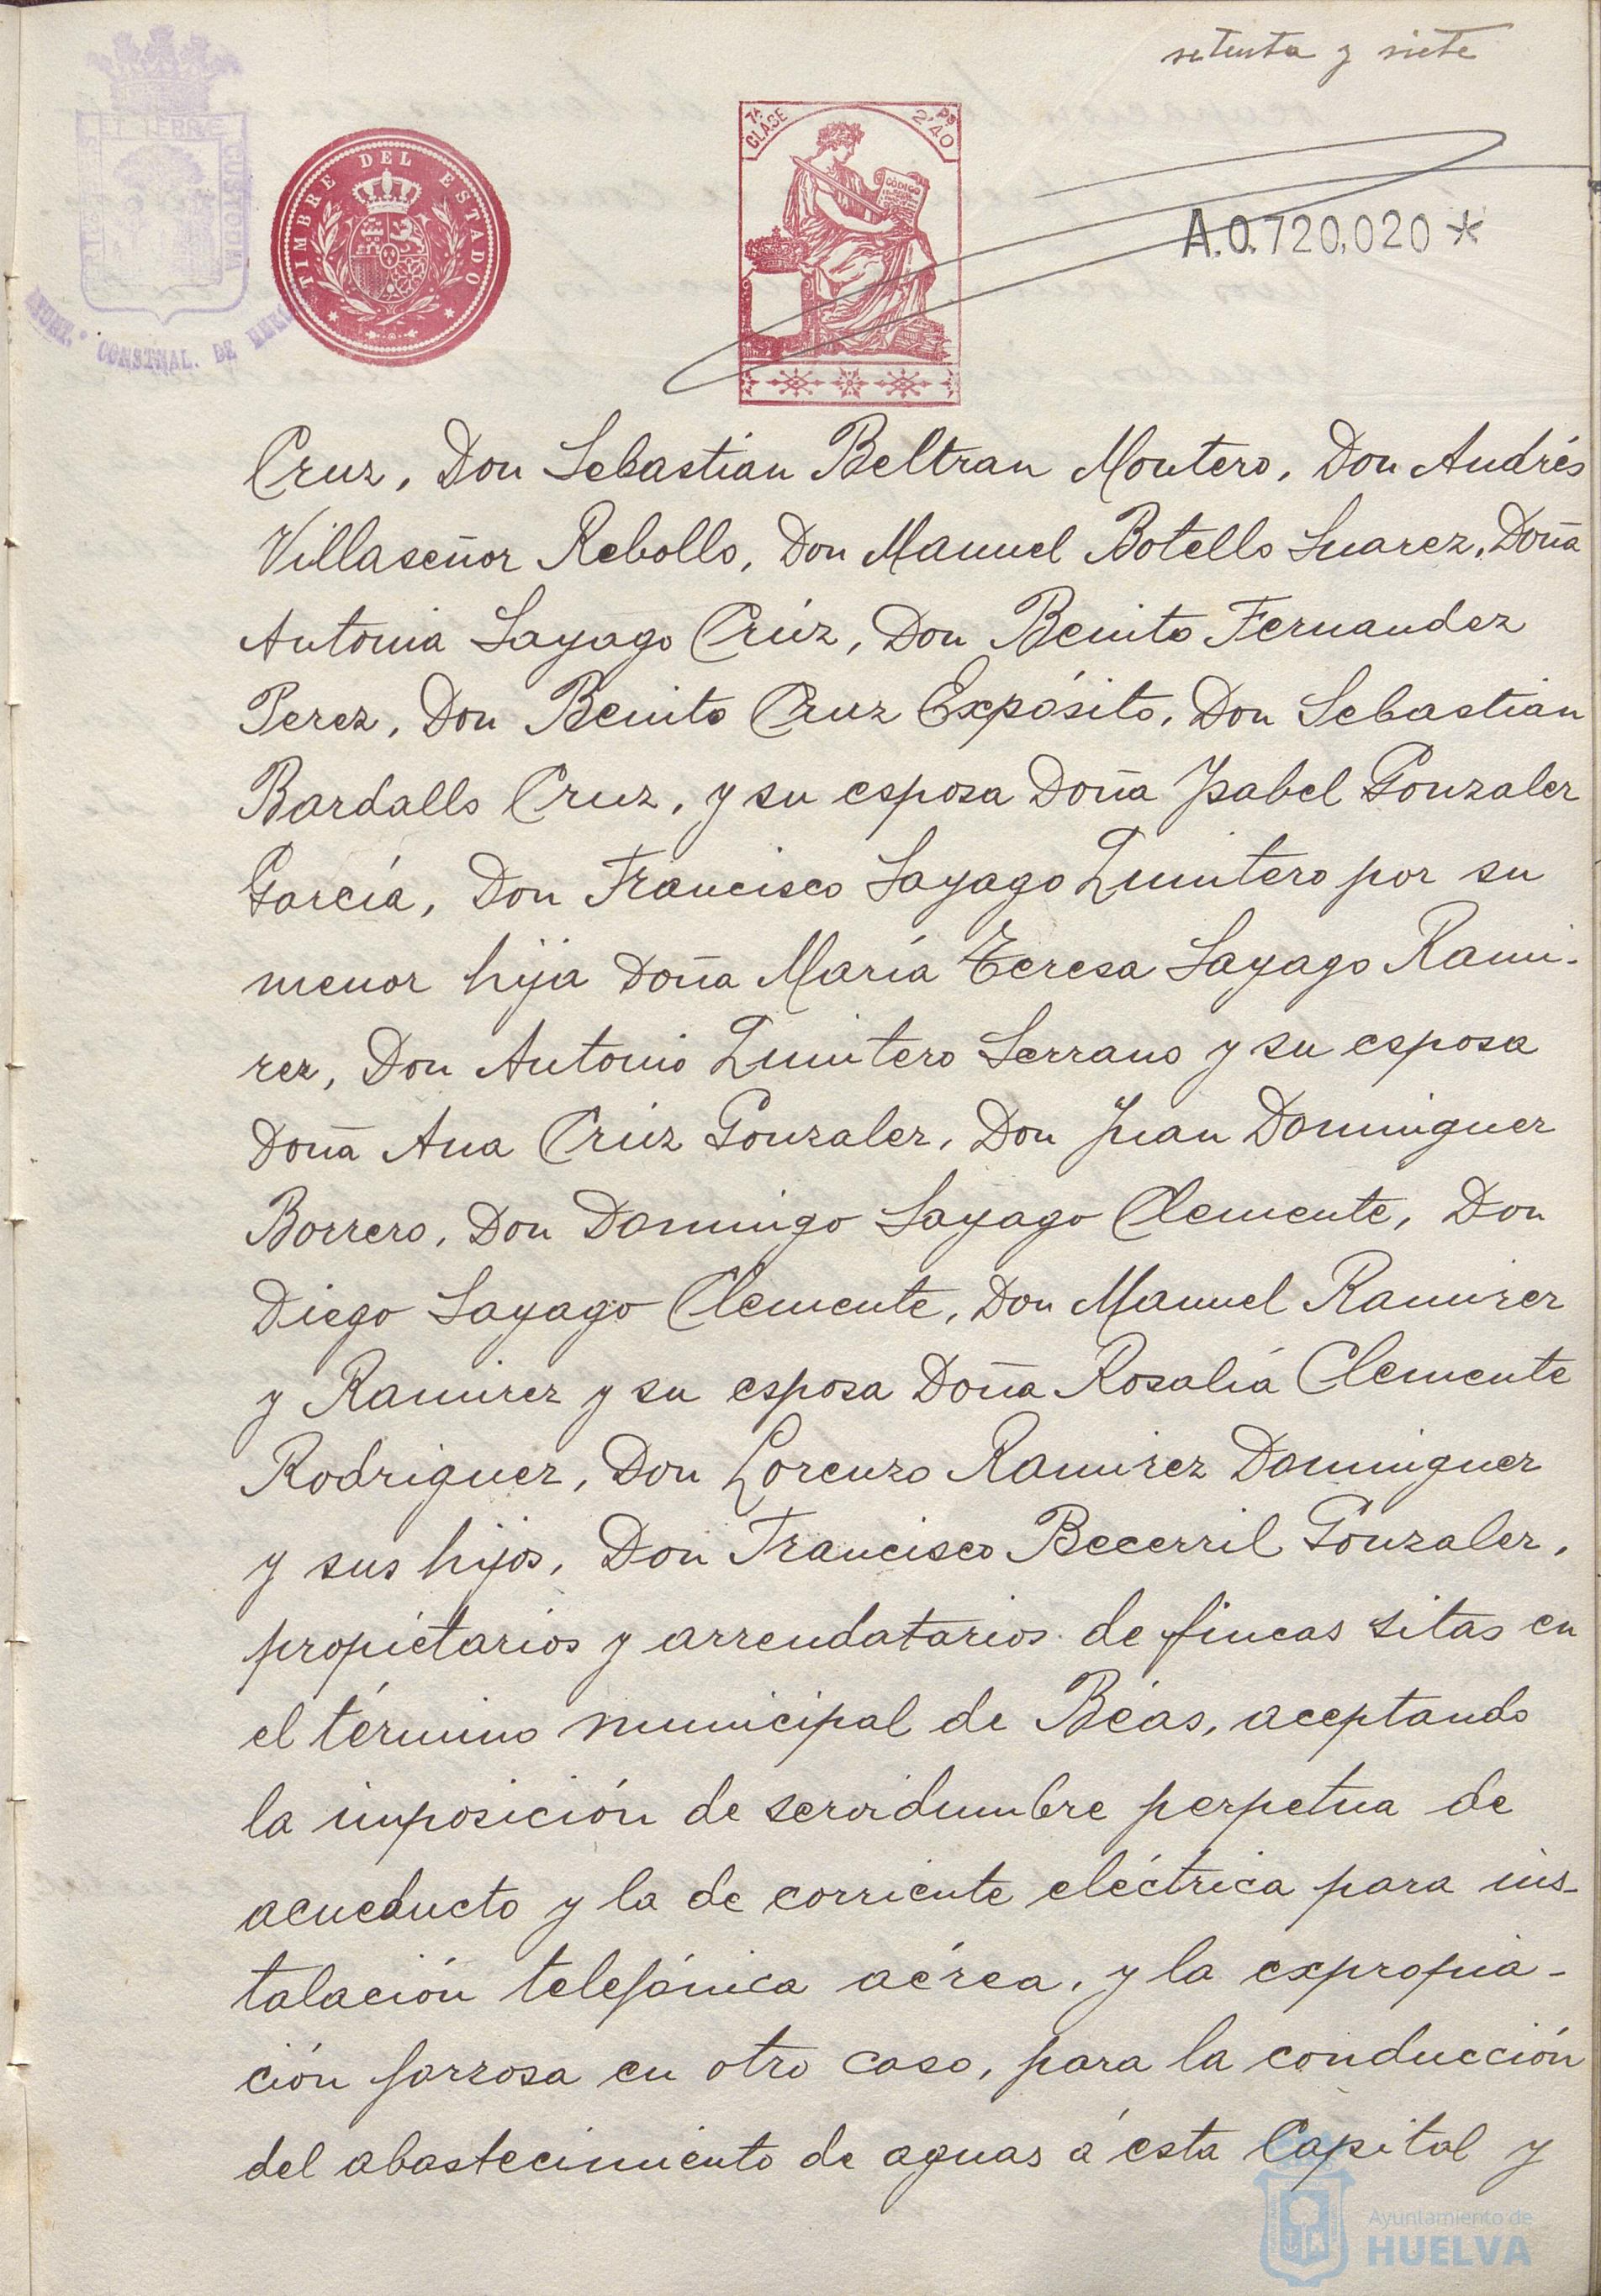 setenta y siete
TIMBRE DEL ESTADO
7ª CLASE
2'40 Ps
CÓDIGO
A.0.720,020*
CUSTODIA
CONSTNAL. DE
Cruz, Don Sebastián Beltran Montero, Don Andrés
Villaseñor Rebollo, Don Manuel Botello Suarez, Doña
Antonia Sayago Crúz, Don Benito Fernandez
Perez, Don Benito Cruz Expósito, Don Sebastian
Bardallo Cruz, y su esposa Doña Ysabel Gonzalez
García, Don Francisco Sayago Quintero por su
menor hija Doña María Teresa Sayago Rami-
rez, Don Antonio Quintero Serrano y su esposa
Doña Ana Crúz Gonzalez, Don Juan Dominguez
Borrero, Don Domingo Sayago Clemente, Don
Diego Sayago Clemente, Don Manuel Ramirez
y Ramirez y su esposa Doña Rosalía Clemente
Rodriguez, Don Lorenzo Ramirez Dominguez
y sus hijos, Don Francisco Becerril Gonzalez,
propietarios y arrendatarios de fincas sitas en
el término municipal de Béas, aceptando
la imposición de servidumbre perpetua de
acueducto y la de corriente eléctrica para ins-
talación telefónica aérea, y la expropia-
ción forzosa en otro caso, para la conducción
del abastecimiento de aguas á esta Capital y
Ayuntamiento de
HUELVA